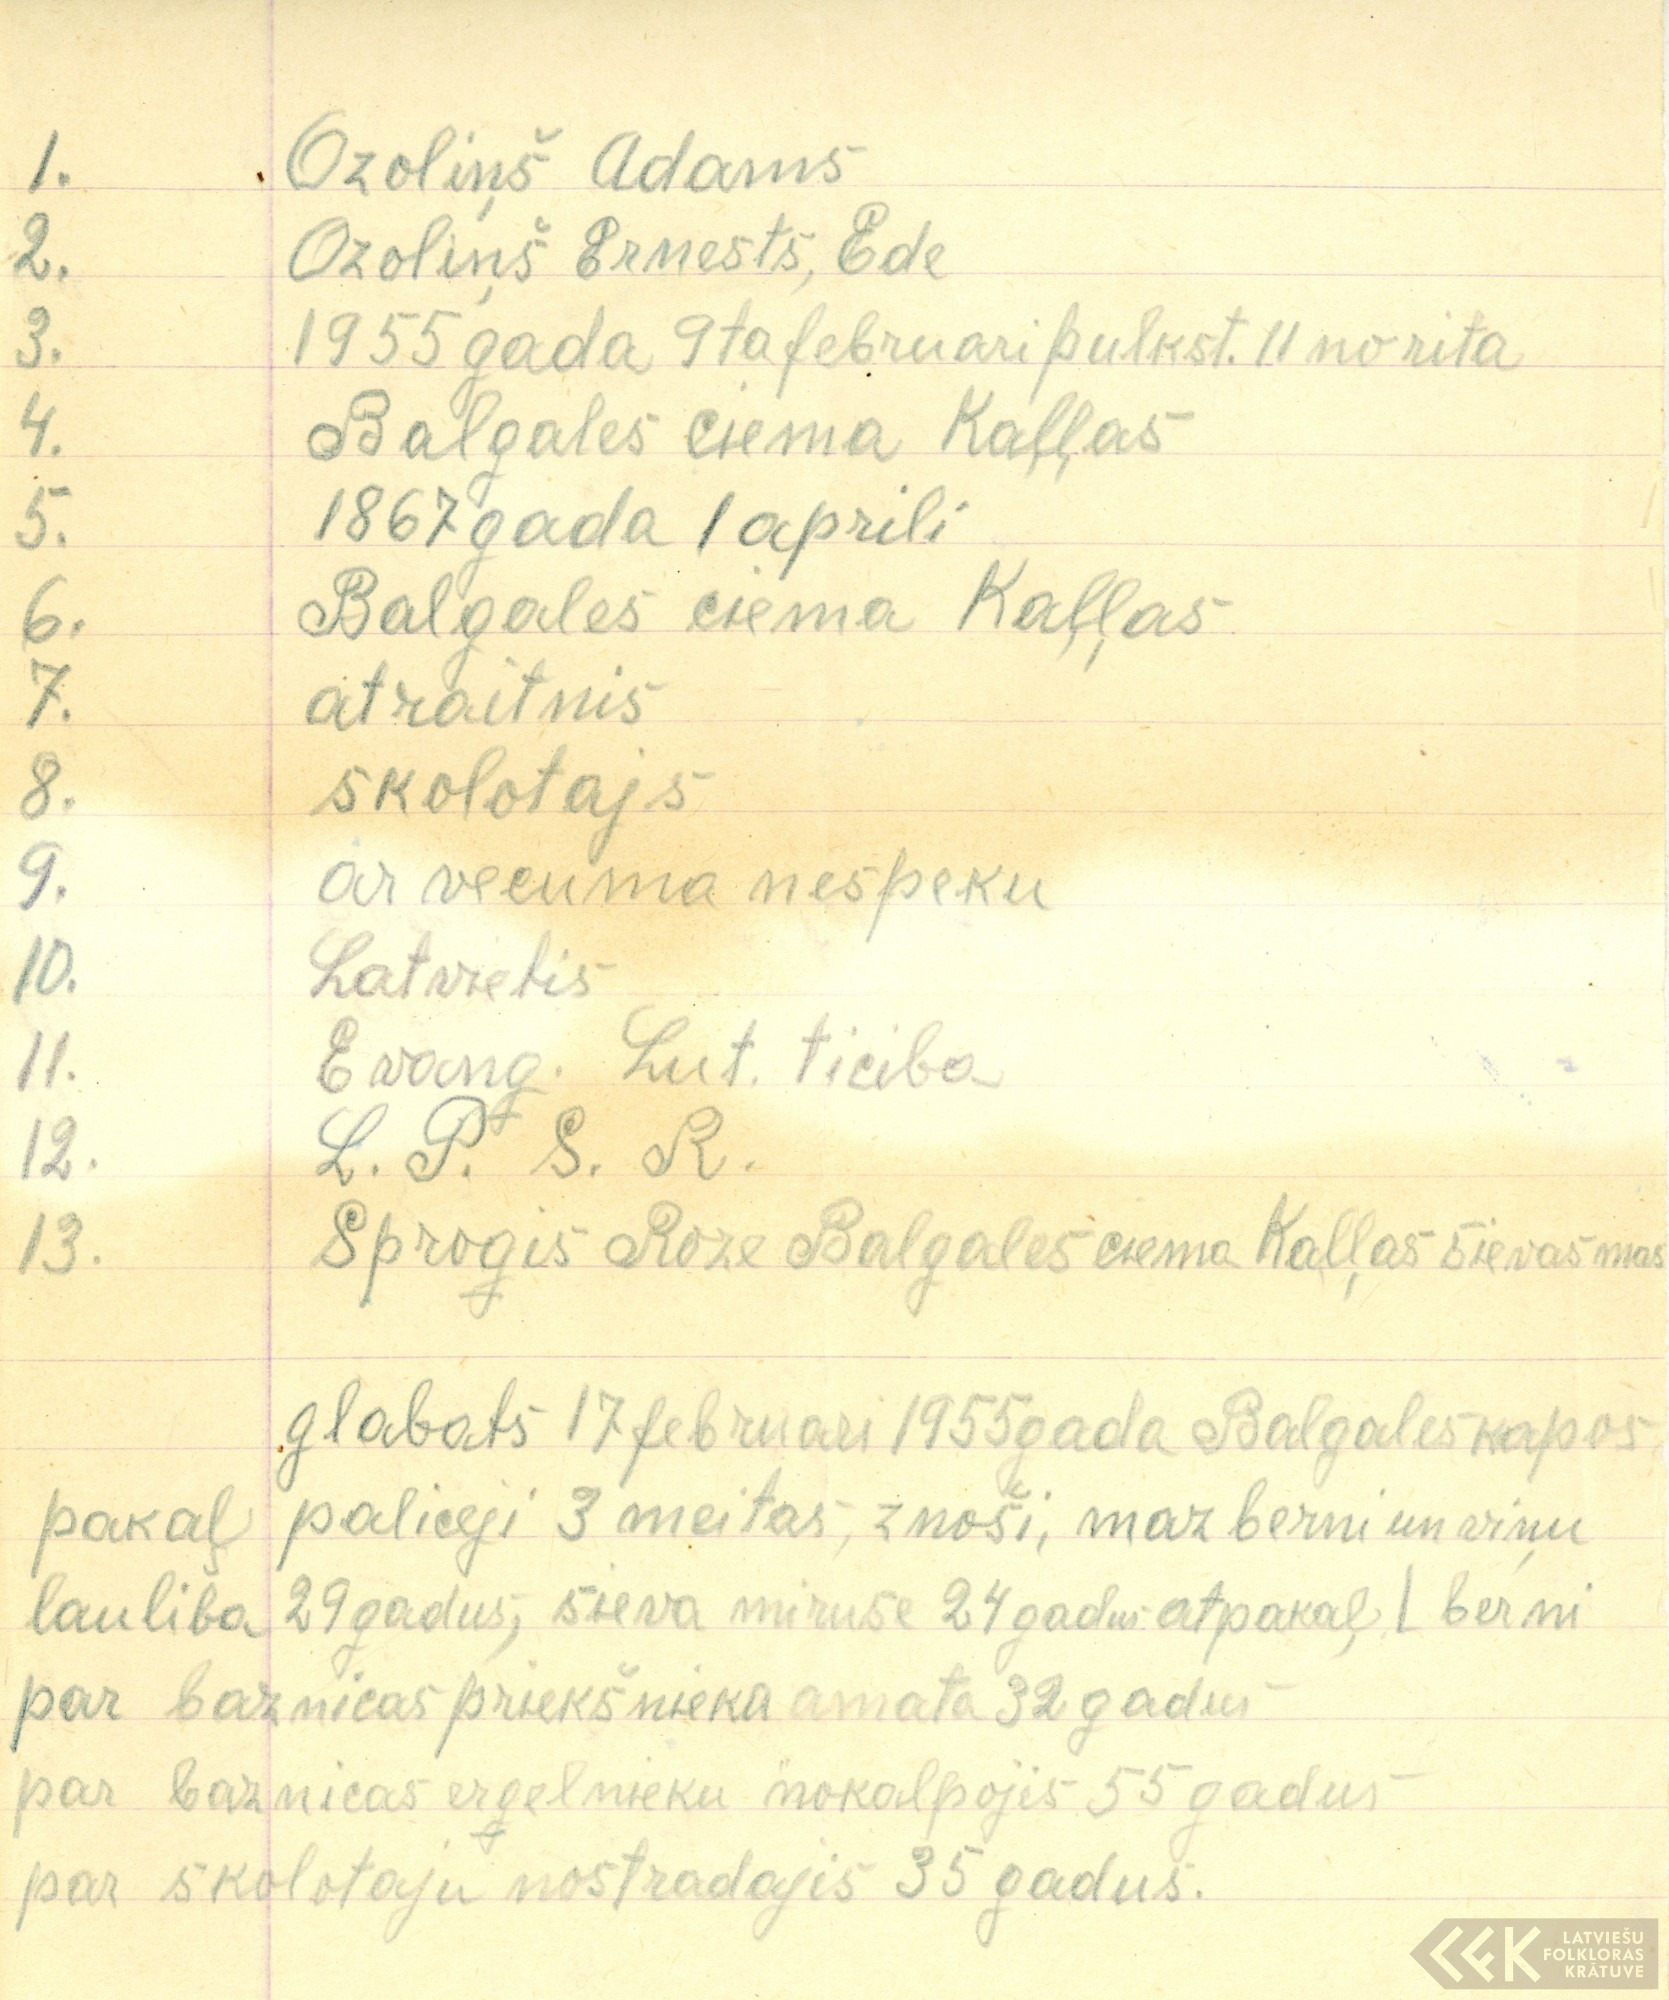 1. Ozoliņš Adams
2. Ozoliņš Ernests, Ede
3. 1955 gada 9ta februari pulkst. 11 no rita
4. Balgales ciema Kaļļas
5. 1867 gada 1 aprili
6. Balgales ciema Kaļļas
7. atraitnis
8. skolotajs
9. ar vecuma nespeku
10. Latvietis
11. Evang. Lut. ticiba
12. L. P. S. R.
13. Sprogis Roze Balgales ciema Kaļļas sievas mas
glabats 17 februari 1955 gada Balgales kapos
pakaļ paliceji 3 meitas, znoši, maz berni un viņu
lauliba 29 gadus, sieva miruse 24 gadus atpakaļ berni
par baznicas priekšnieka amata 32 gadus
par baznicas ergelnieku nokalpojis 55 gadus
par skolotaju nostradajis 35 gadus.
LATVIEŠU
FOLKLORAS
KRĀTUVE